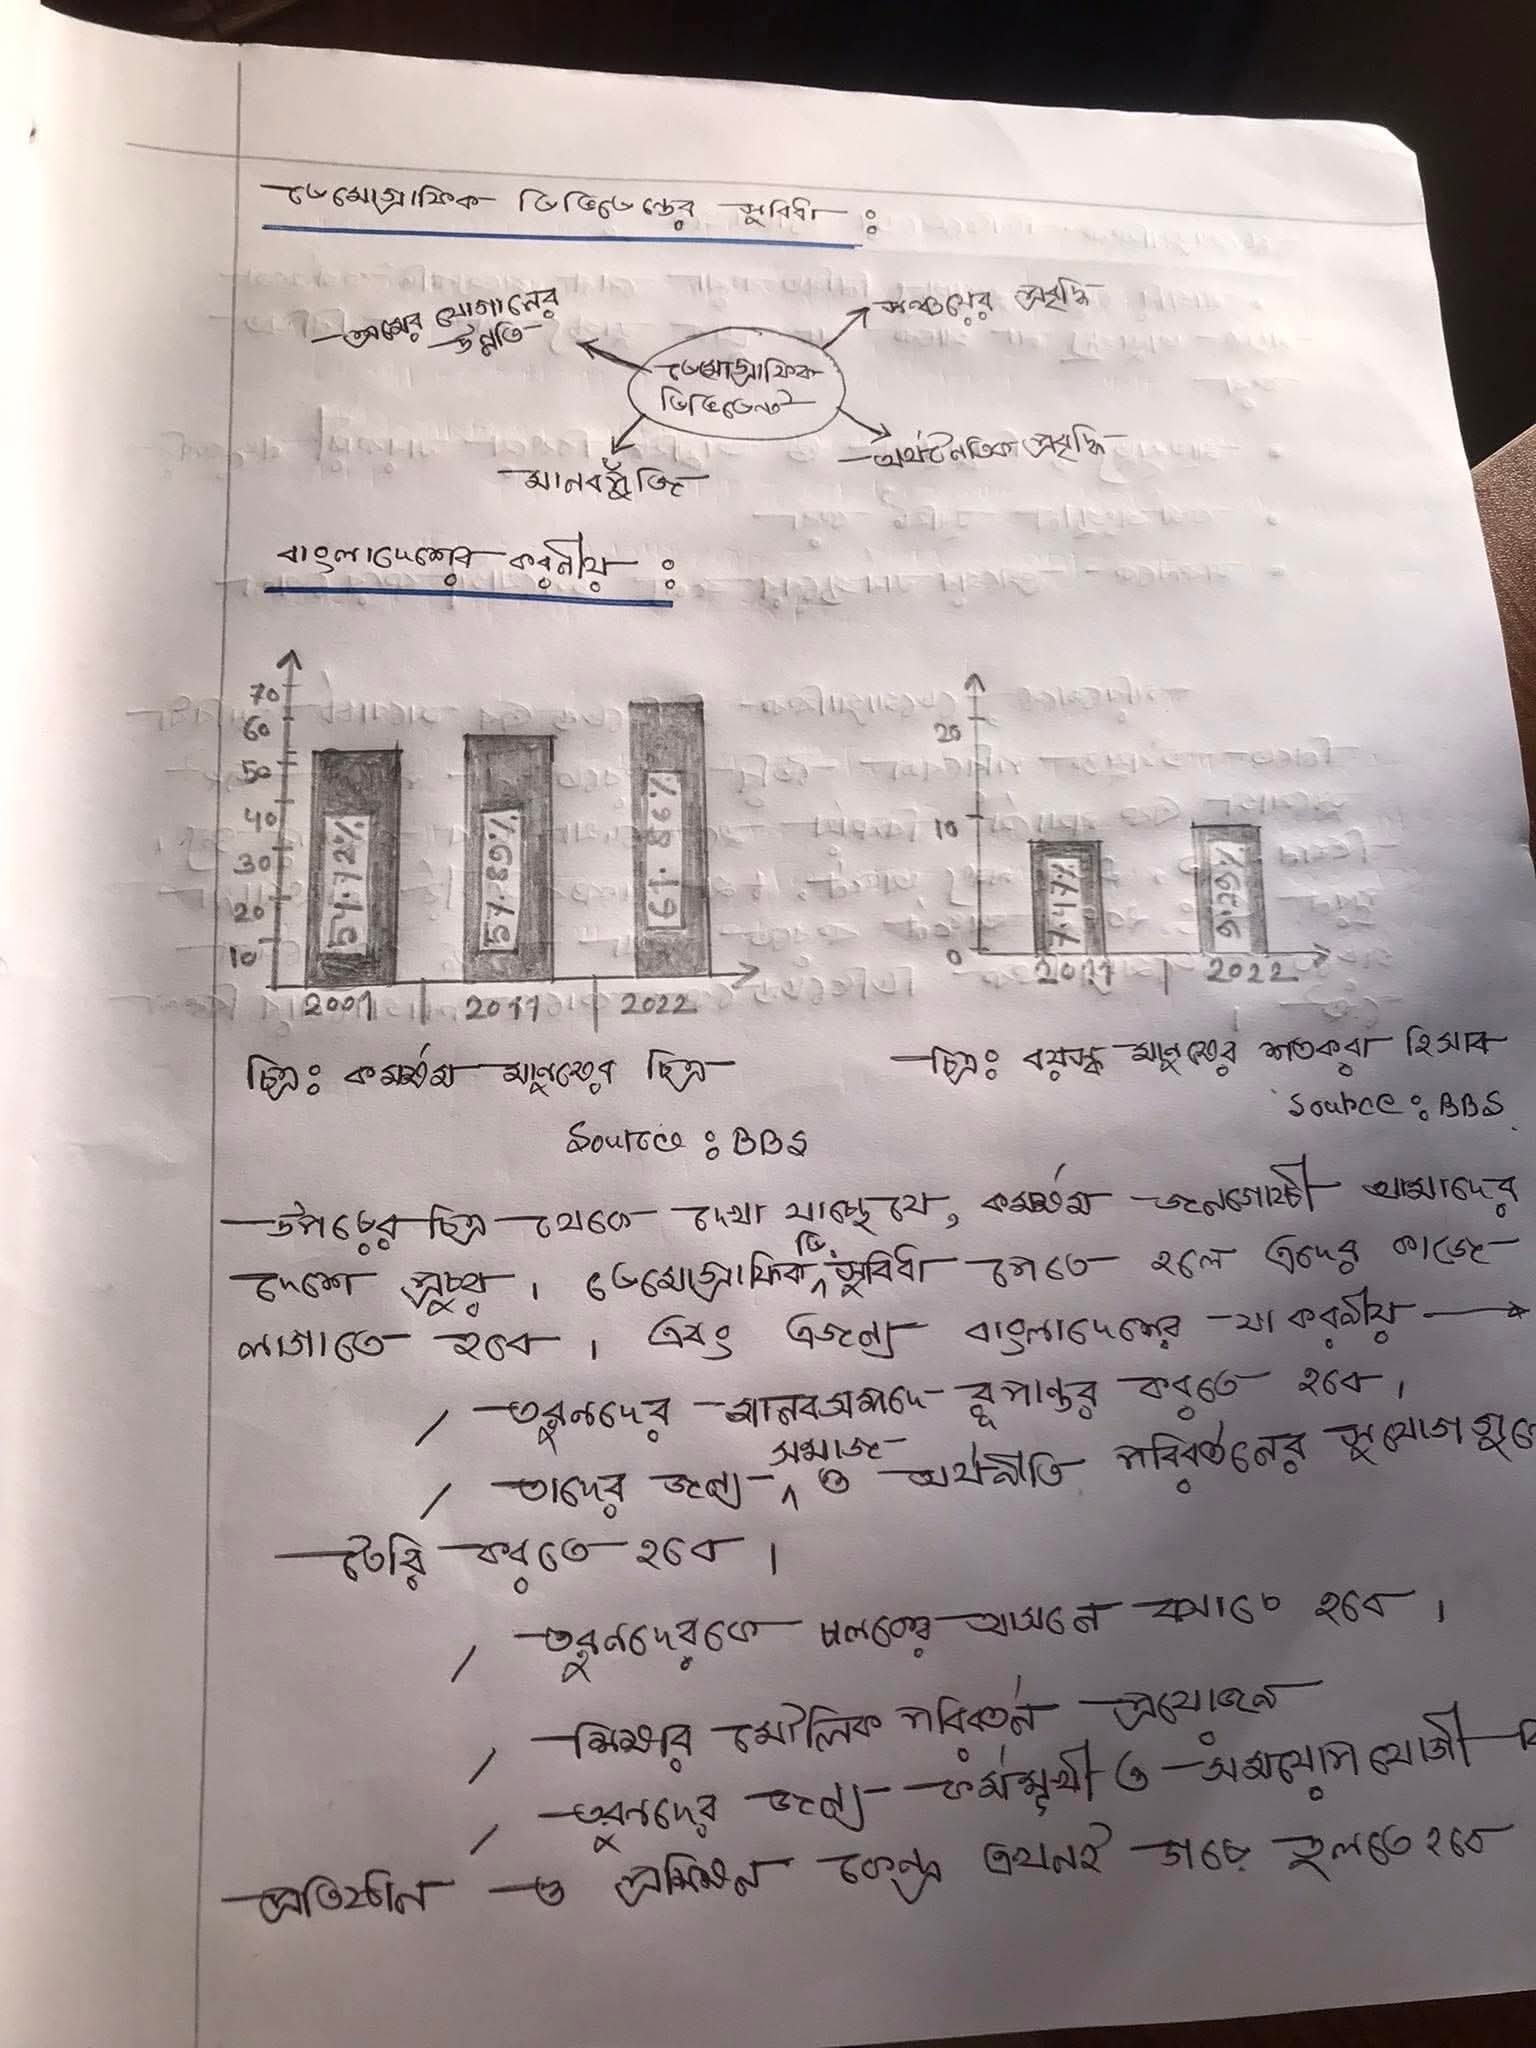 ডেমোগ্রাফিক ডিভিডেন্ডের সুবিধা :
শ্রমের যোগানের
উন্নতি
সঞ্চয়ের প্রবৃদ্ধি
ডেমোগ্রাফিক
ডিভিডেন্ড
মানবপুঁজি
অর্থনৈতিক প্রবৃদ্ধি
বাংলাদেশের করনীয় :
70
60
50
40
30
20
10
54.72%
57.89%
61.86%
2001
2011
2022
20
10
0
7.47%
9.29%
2011
2022
চিত্র: কর্মক্ষম মানুষের চিত্র
Source : BBS
চিত্র: বয়স্ক মানুষের শতকরা হিসাব
Source : BBS
উপরের চিত্র থেকে দেখা যাচ্ছে যে, কর্মক্ষম জনগোষ্ঠী আমাদের
দেশে প্রচুর । ডেমোগ্রাফিক ডি. সুবিধা পেতে হলে এদের কাজে
লাগাতে হবে । এবং এজন্য বাংলাদেশের যা করনীয় →
/ তরুনদের মানবসম্পদে রূপান্তর করতে হবে ।
/ তাদের জন্য সমাজ ও অর্থনীতি পরিবর্তনের সুযোগ
তৈরি করতে হবে ।
/ তরুনদেরকে চালকের আসনে বসাতে হবে ।
/ শিক্ষার মৌলিক পরিবর্তন প্রয়োজন
/ তরুনদের জন্য কর্মমুখী ও সময়োপযোগী
প্রতিষ্ঠান ও প্রশিক্ষন কেন্দ্র এখনই গড়ে তুলতে হবে